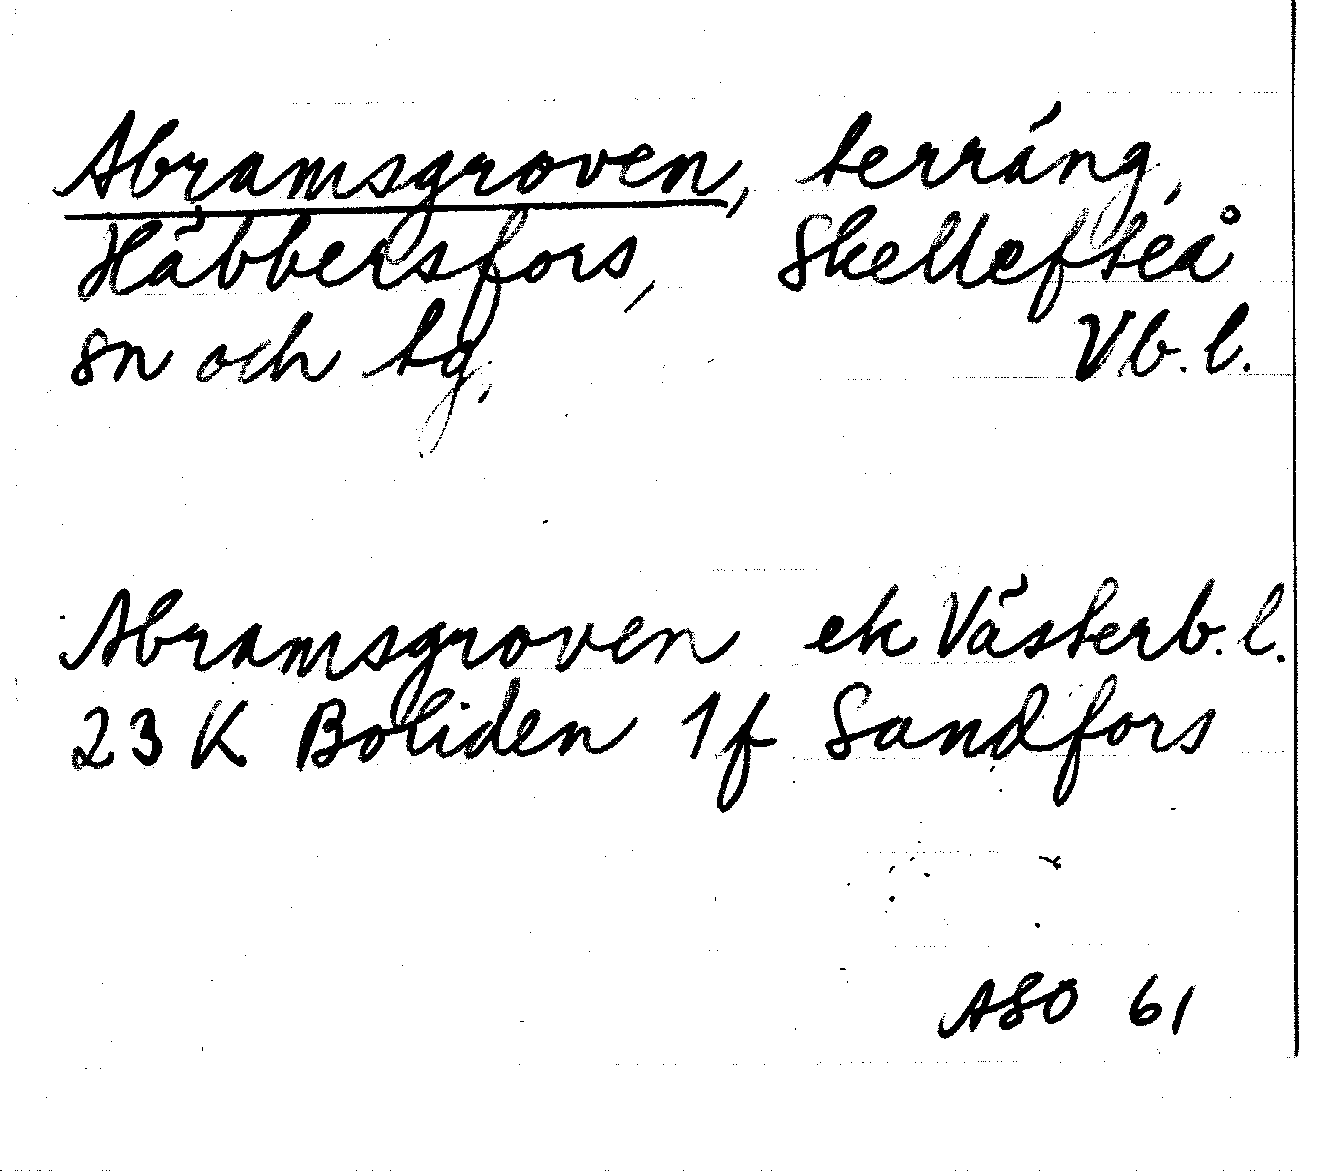 Abramsgroven, terräng,
Häbbersfors, Skellefteå
sn och tg, Vb. l.
Abramsgroven ek Västerb. l.
23 K Boliden 1f Sandfors
ASO 61